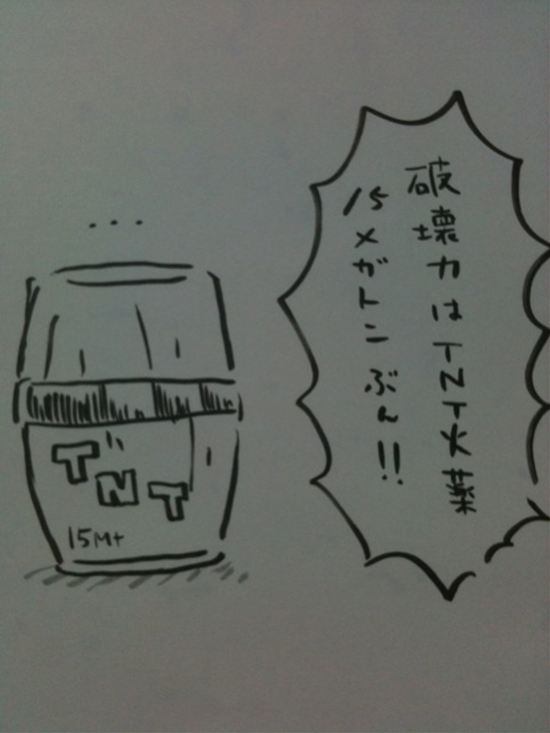 破壊力はTNT火薬
15メガトンぶん!!
...
TNT
15Mt